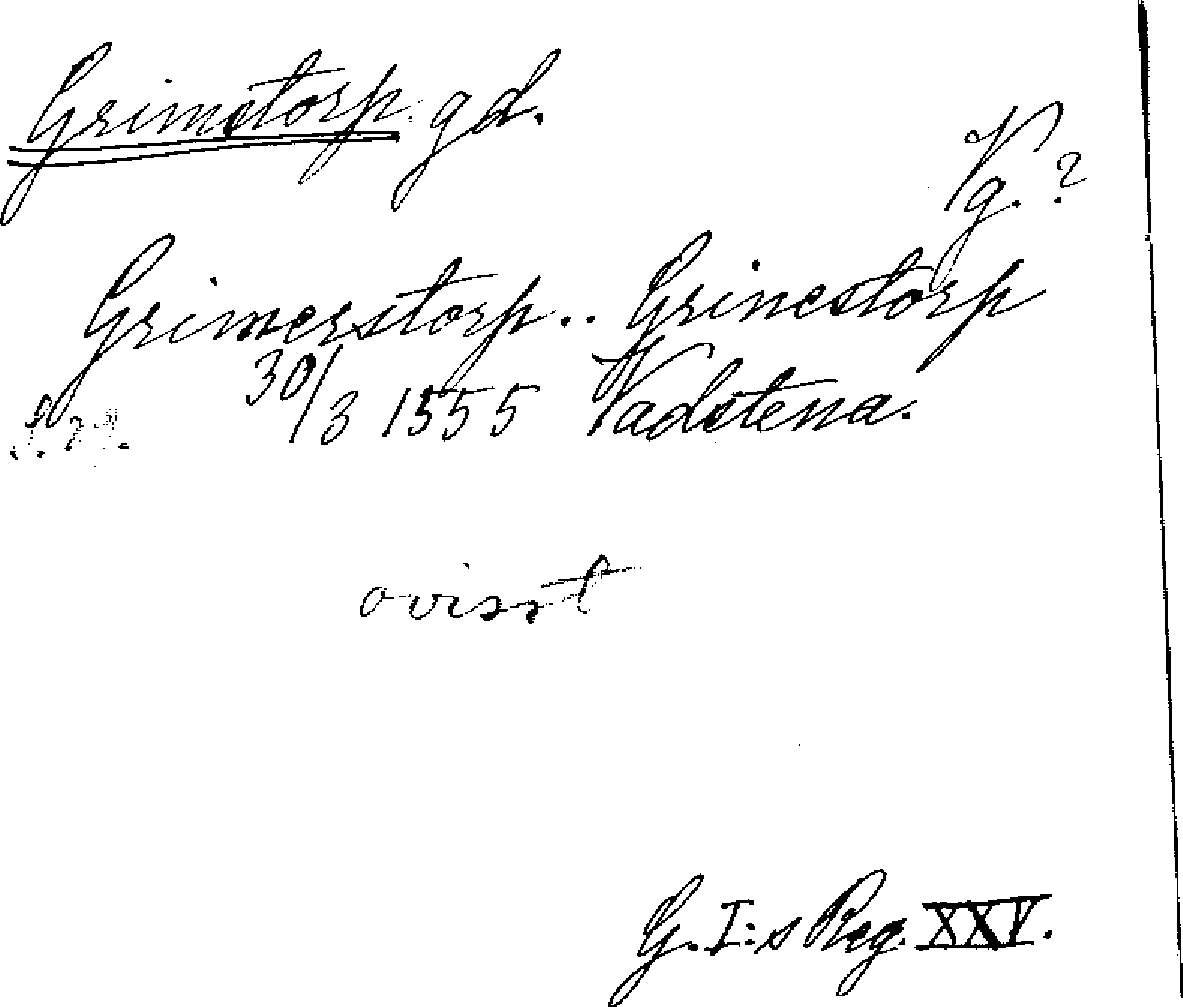 Grimstorp. gd.
Vg. ?
Grimerstorp.. Grinestorp
30/3 1555 Vadstena.
ovisst
G. I:s Reg. XXV.